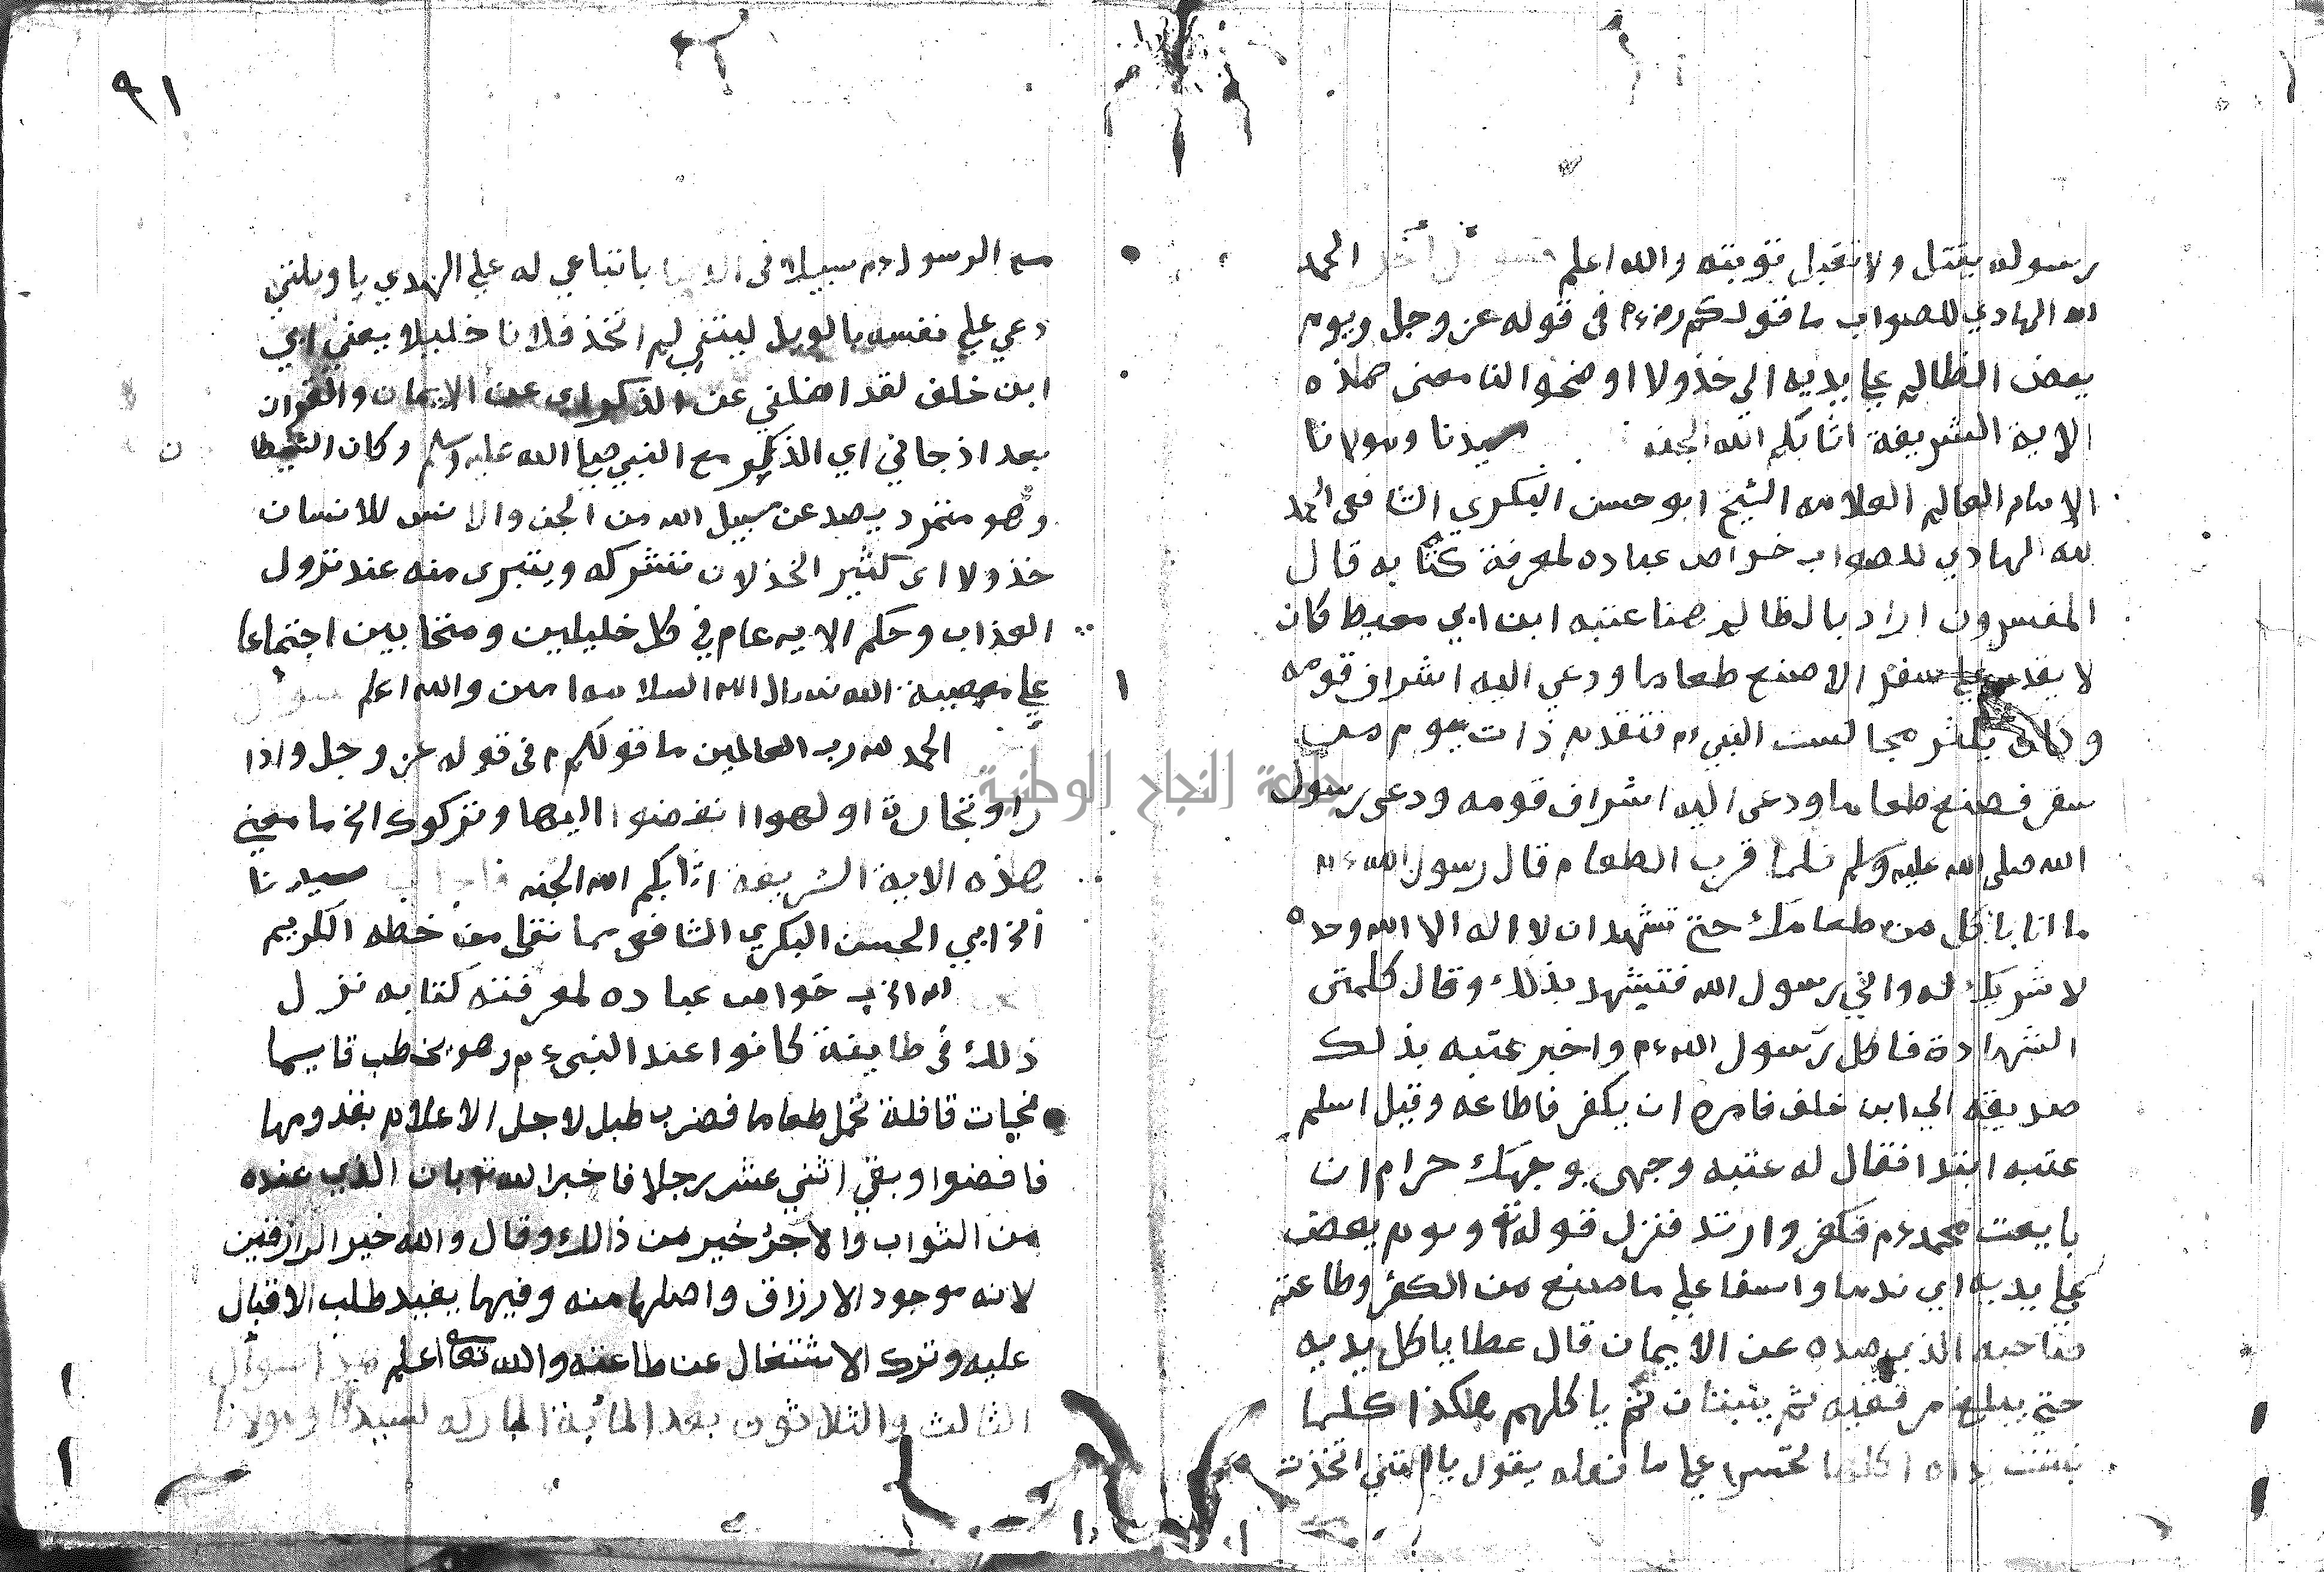 رسوله يقتل ولا تقبل توبته والله اعلم سوال اخر الحمد
لله الهادي للصواب ما قولكم رضي م في قوله عز وجل ويوم
يعض الظالم علي يديه الي خذولا اوضحوا لنا معنى هذه
الاية الشريفة اثابكم الله الجنه سيدنا ومولانا
الامام العالم العلامه الشيخ ابو حسن البكري الشافعي الحمد
لله الهادي للصواب خواص عباده لمعرفة كتابه قال
المفسرون اراد بالظالم هنا عتبه ابن ابي معيط كان
لا يقدم علي سفر الا صنع طعاما ودعي اليه اشراف قومه
وكان يكثر مجالست النبي م فتقدم ذات يوم من
سفر فصنع طعاما ودعى اليه اشراف قومه ودعى رسول
الله صلى الله عليه وسلم فلما قرب الطعام قال رسول الله م
ما انا باكل من طعامك حتى تشهد ان لا اله الا الله وحده
لا شريك له واني رسول الله فتيشهد بذلك وقال كلمتى
الشهادة فاكل رسول الله م واخبر عتبه بذلك
صديقه ابي ابن خلف فامره ان يكفر فاطاعه وقيل اسلم
عتبه ابتدا فقال له عتبه وجهى بوجهك حرام ان
بايعت محمد م فكفر وارتد فنزل قوله ته ويوم يعض
علي يديه اي ندما واسفا علي ما صنع من الكفر وطاعته
صاحبه الذي صده عن الايمان قال عطا ياكل يديه
حتي يبلغ مرفقيه ثم ينبتان ثم ياكلهم هكذا كلما
نبتت يداه اكلها تحسرا علي ما فعله يقول ياليتني اتخذت
٩١
مع الرسول م سبيلا في الدنيا باتباعي له علي الهدي يا ويلتي
دعي علي نفسه بالويل ليتني لم اتخذ فلانا خليلا يعني ابي
ابن خلف لقد اضلني عن الذكر اي عن الايمان والقران
بعد اذ جاني اي الذكر مع النبي صلى الله عليه وسلم وكان الشيطا ن
وهو متمرد يصد عن سبيل الله من الجن والانس للانسان
خذولا اي كثير الخذلان تشركه ويتبرى منه عند نزول
العذاب وحكم الايه عام في كل خليلين ومتحابين اجتماعا
علي معصية الله نسال الله السلامه امين والله اعلم سوال
الحمد لله رب العالمين ما قولكم م في قوله عز وجل واذا
راو تجارة او لهوا انفضوا اليها وتركوك الخ ما معني
هذه الاية الشريفة اثابكم الله الجنه فاجاب سيدنا
الخ ابي الحسن البكري الشافعي مما نقل من خطه الكريم
لله الخ ب خواص عباده لمعرفته كتابه نزل
ذلك في طايفة كانوا عند النبي م وهو يخطب قايما
فجيات قافلة تحمل طعاما فضرب طبل لاجل الاعلام بقدومها
فافضوا وبقي اثني عشر رجلا فاخبر الله ته بان الذي عنده
من الثواب والاجر خير من ذالك وقال والله خير الرازقين
لانه موجود الارزاق واصلها منه وفيها يفيد طلب الاقبال
عليه وترك الاشتغال عن طاعته والله تعا اعلم هذا سوال
الثالث والثلاثون بعد المائة المباركه لسيدنا ومولانا
جامعة النجاح الوطنية